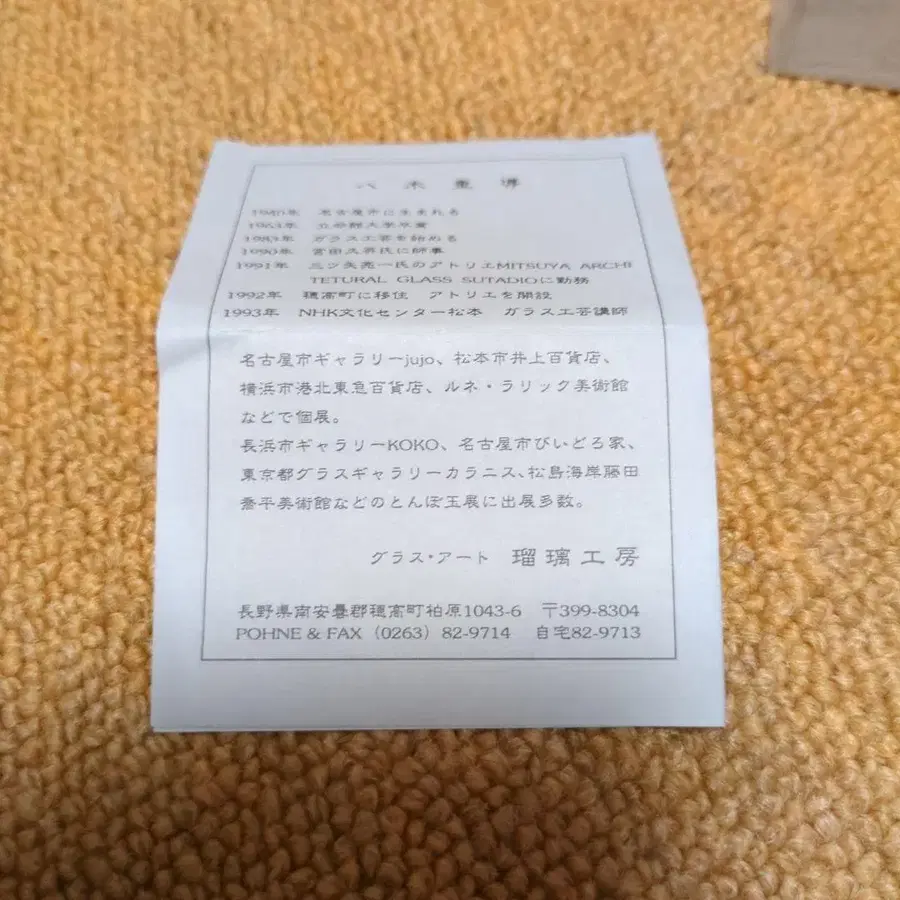 八木重導
1940年 名古屋市に生まれる
1963年 立命館大学卒業
1983年 ガラス工芸を始める
1990年 宮田久芸氏に師事
1991年 三ツ矢亮一氏のアトリエMITSUYA ARCHI
TETURAL GLASS SUTADIOに勤務
1992年 穂高町に移住 アトリエを開設
1993年 NHK文化センター松本 ガラス工芸講師
名古屋市ギャラリーjujo、松本市井上百貨店、
横浜市港北東急百貨店、ルネ・ラリック美術館
などで個展。
長浜市ギャラリーKOKO、名古屋市びいどろ家、
東京都グラスギャラリーカラニス、松島海岸藤田
喬平美術館などのとんぼ玉展に出展多数。
グラス・アート 瑠璃工房
長野県南安曇郡穂高町柏原1043-6 〒399-8304
POHNE & FAX (0263) 82-9714 自宅82-9713